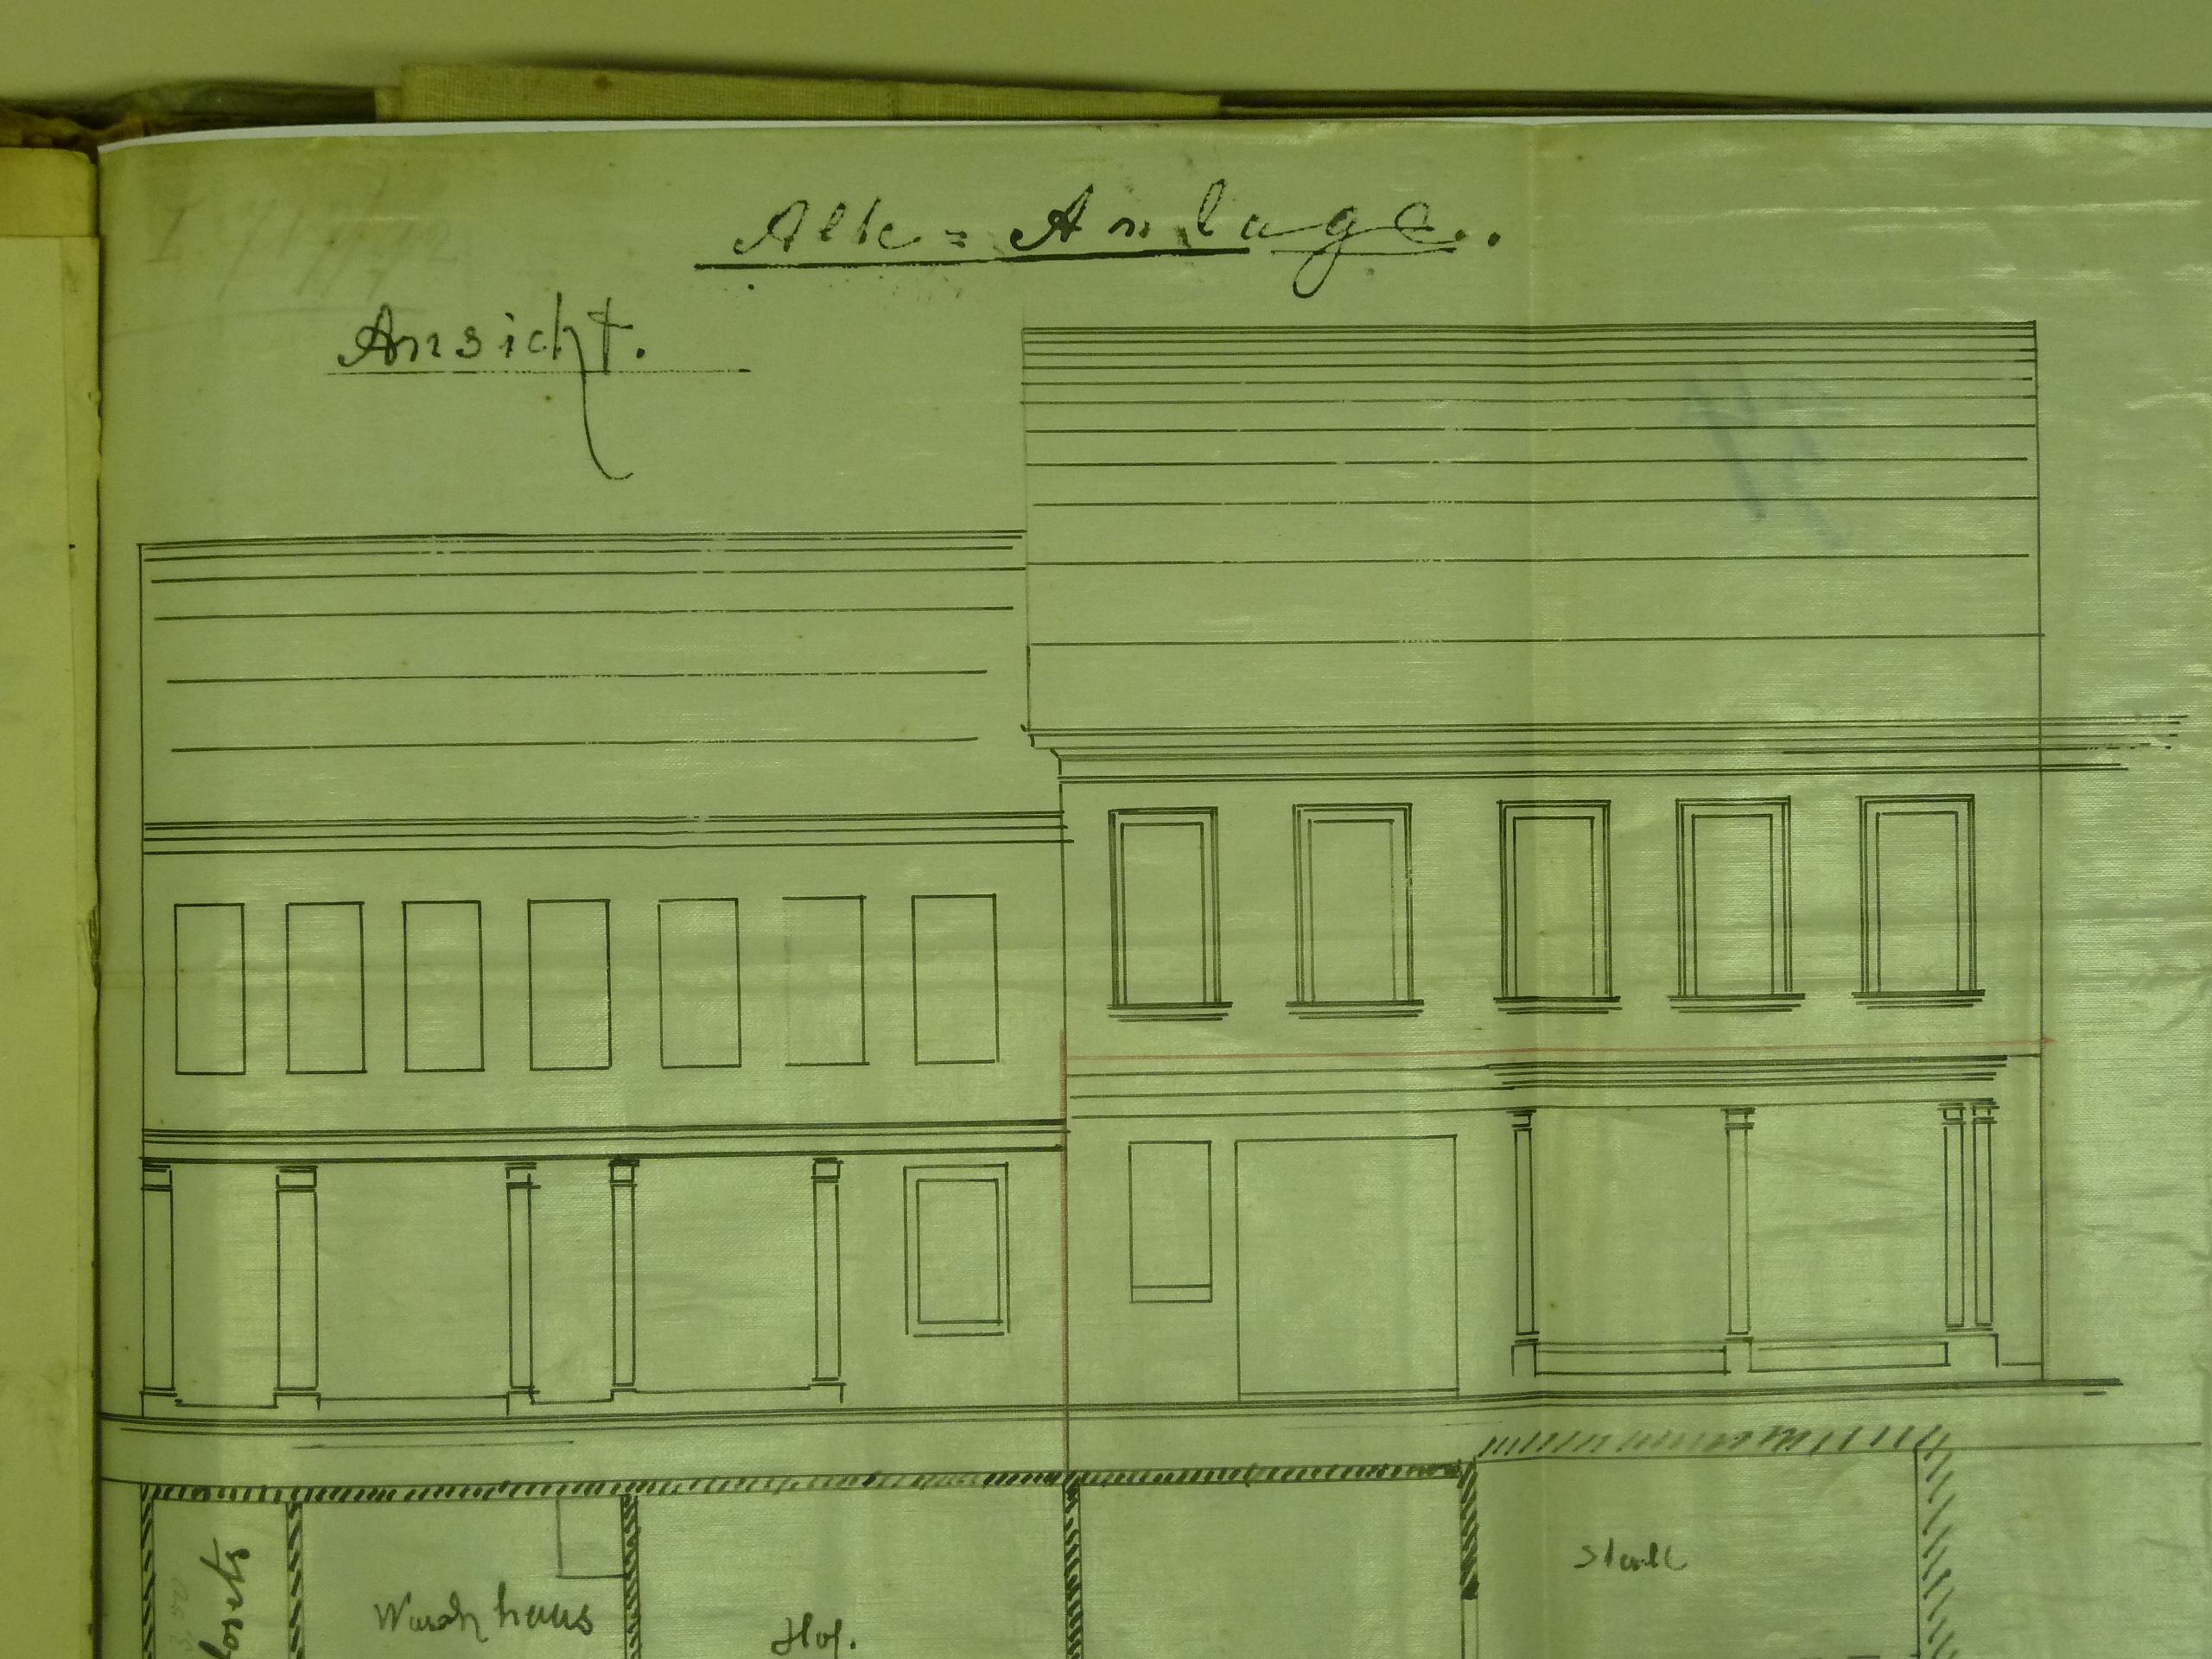 Alte=Anlage.
Ansicht.
Closets
Waschhaus
Hof.
Stall